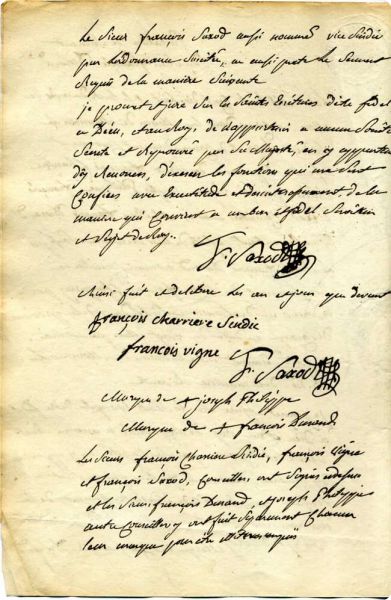 Le Sieur françois Saxod aussi nommé vice sindic
par l'ordonnance Susditte, a aussi prete le Serment
Requis de la maniere Suivante
je promet et jure Sur les Saints Ecritures d'etre fidel
a Dieu, et au Roy, de n'appartenir a aucune Société
Secrete et Reprouvé par Sa Majesté, en y appartenant
d'y Renoncer, d'exercer les fonctions qui me Sont
Confiées avec Exactitude et de la
maniere qui Convient a un bon et fidel Serviteur
et Sujet du Roy.
F. Saxod
Ainsi fait et deliberé les an et jour que devant
françois charriere Sindic
francois vigne F. Saxod
Marque de + joseph Philippe
Marque de + françois Durand
Les Sieurs françois Charriere Sindic, françois Vigne
et françois Saxod, Conseillers ont Signés
et les Sieurs françois Durand, et joseph Philippe
autre Conseillers y ont fait Separement Chacun
leur marque pour etre illiteres requis